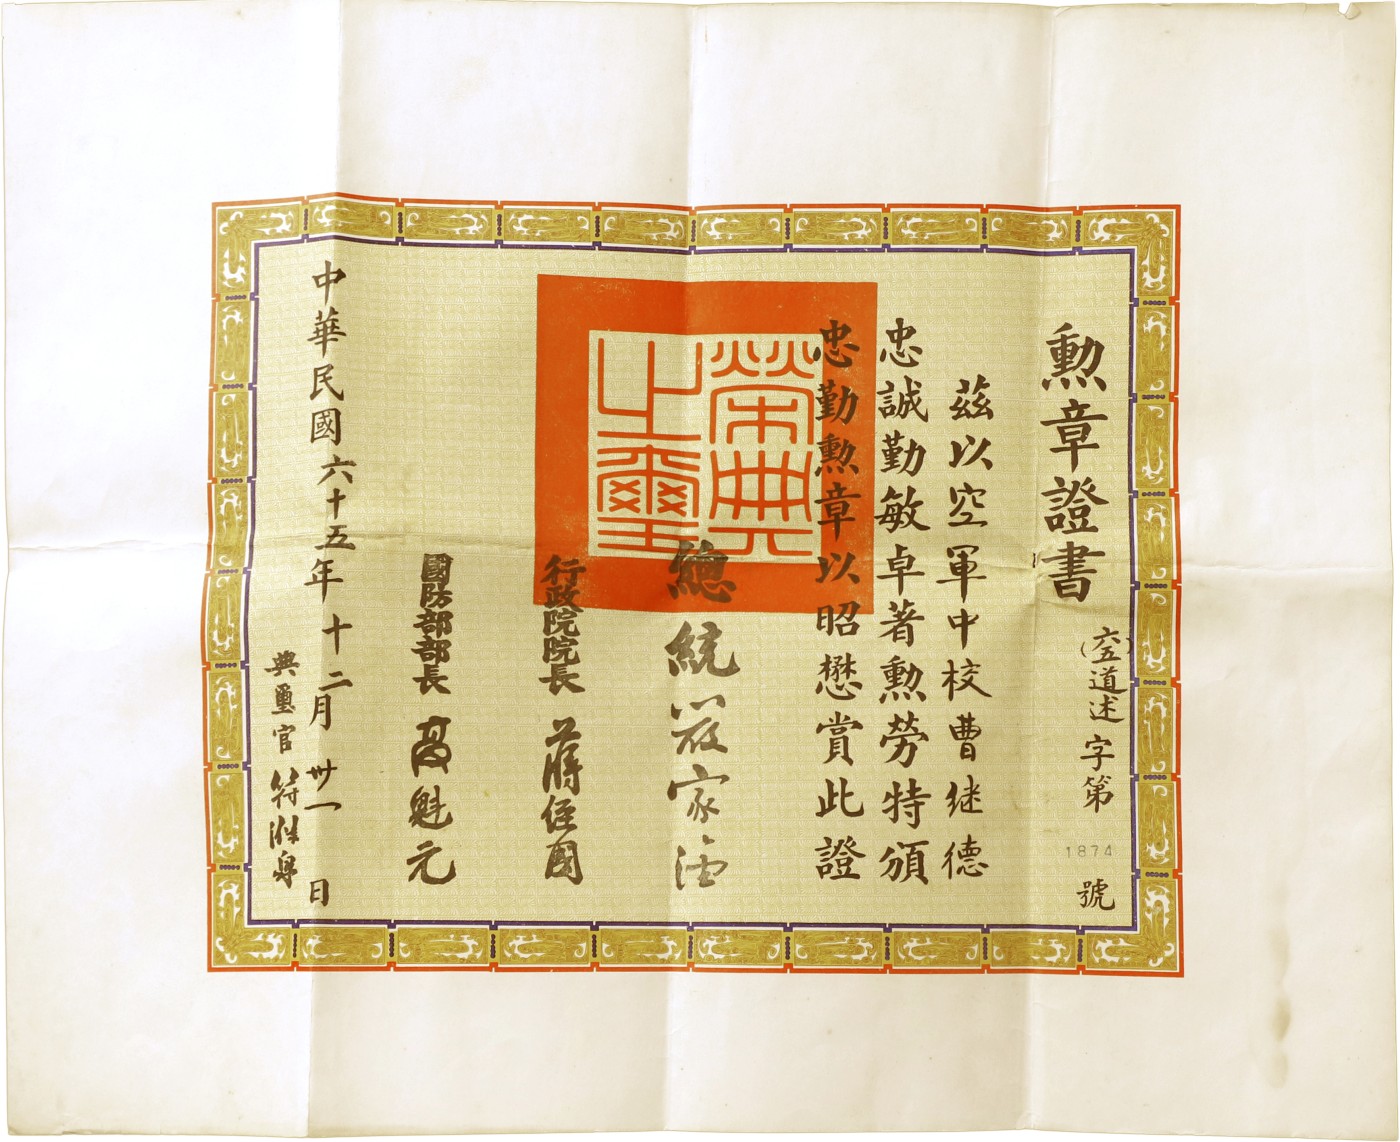 勲章證書
(六五)道述字第1874號
茲以空軍中校曹继德
忠誠勤敏卓著勲勞特頒
忠勤勲章以昭懋賞此證
榮典之璽
總統嚴家淦
行政院院長蔣經國
國防部部長高魁元
中華民國六十五年十二月卅一日
典璽官符